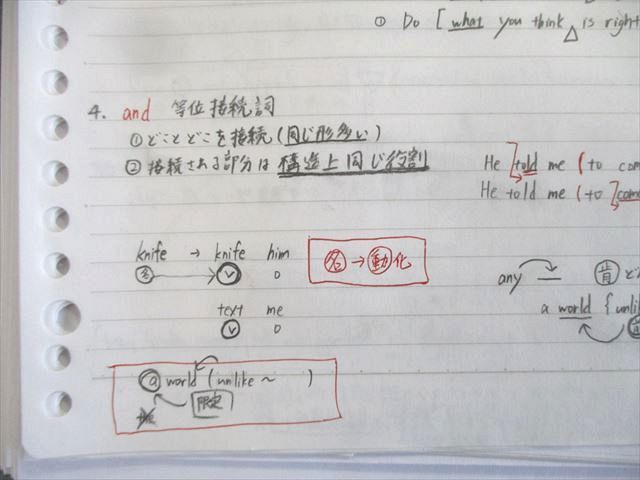 ① Do [what you think △ is right
4. and 等位接続詞
① どことどこを接続(同じ形多い)
② 接続される部分は 構造上同じ役割
He told me (to com
He told me (to come
knife → knife him
名 → V O
名 → 動化
text me
V O
any 肯
a world {unli
a world (unlike ~ )
the 限定